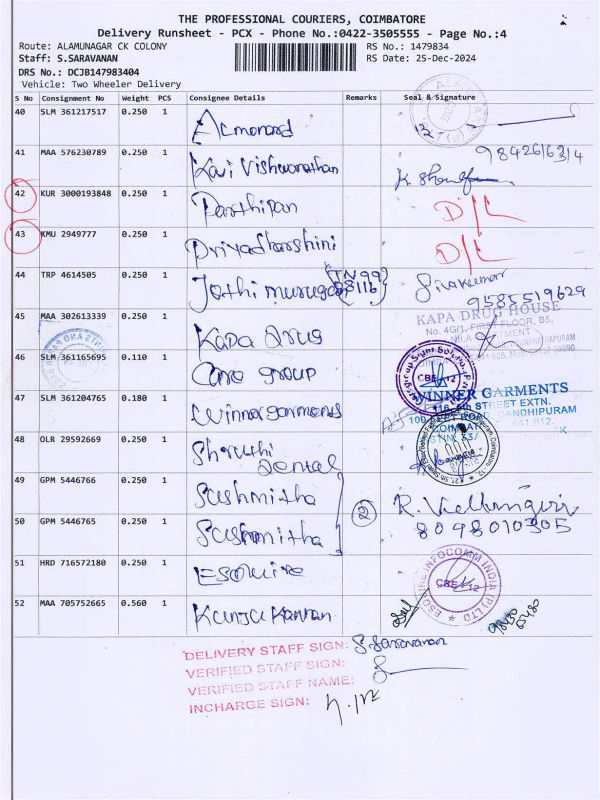 THE PROFESSIONAL COURIERS, COIMBATORE
Delivery Runsheet - PCX - Phone No.:0422-3505555 - Page No.:4
Route: ALAMUNAGAR CK COLONY RS No.: 1479834
Staff: S.SARAVANAN RS Date: 25-Dec-2024
DRS No.: DCJB147983404
Vehicle: Two Wheeler Delivery
S No Consignment No Weight PCS Consignee Details Remarks Seal & Signature
40 SLM 361217517 0.250 1
41 MAA 576230789 0.250 1 Kavi Vishwanathan
42 KUR 3000193848 0.250 1 Parthipan D/L
43 KMU 2949777 0.250 1 Priyadharshini D/L
44 TRP 4614505 0.250 1 Jothi murugan Sivakumar
9585519629
45 MAA 302613339 0.250 1 Kapa Drug
KAPA DRUG HOUSE
46 SLM 361165695 0.110 1 Care group
47 SLM 361204765 0.180 1 Winner garments
WINNER GARMENTS
5th STREET EXTN.
GANDHIPURAM
48 OLR 29592669 0.250 1 Shruthi
Dental
49 GPM 5446766 0.250 1 Sushmitha
50 GPM 5446765 0.250 1 Sushmitha (2)
8098010305
51 HRD 716572180 0.250 1 Esquire
ESQUIRE INFOCOMM INDIA (P) LTD
52 MAA 705752665 0.560 1 Kanju Kannan
DELIVERY STAFF SIGN: S.Saravanan
VERIFIED STAFF SIGN:
VERIFIED STAFF NAME:
INCHARGE SIGN: